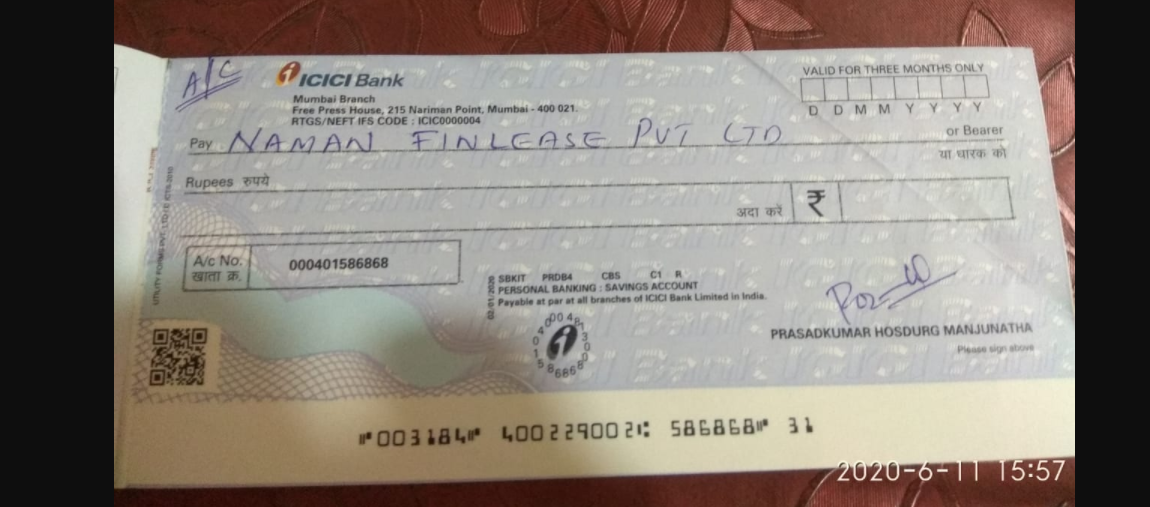 A/C
ICICI Bank
Mumbai Branch
Free Press House, 215 Nariman Point, Mumbai - 400 021.
RTGS/NEFT IFS CODE : ICIC0000004
VALID FOR THREE MONTHS ONLY
D D M M Y Y Y Y
Pay NAMAN FINLEASE PVT LTD or Bearer
या धारक को
Rupees रुपये
अदा करें ₹
A/c No. 000401586868
खाता क्र.
SBKIT PRDB4 CBS C1 R
PERSONAL BANKING : SAVINGS ACCOUNT
Payable at par at all branches of ICICI Bank Limited in India.
02/01/2020
PRASADKUMAR HOSDURG MANJUNATHA
Please sign above
⑈003184⑈ 400229002⑆ 586868⑈ 31
2020-6-11 15:57